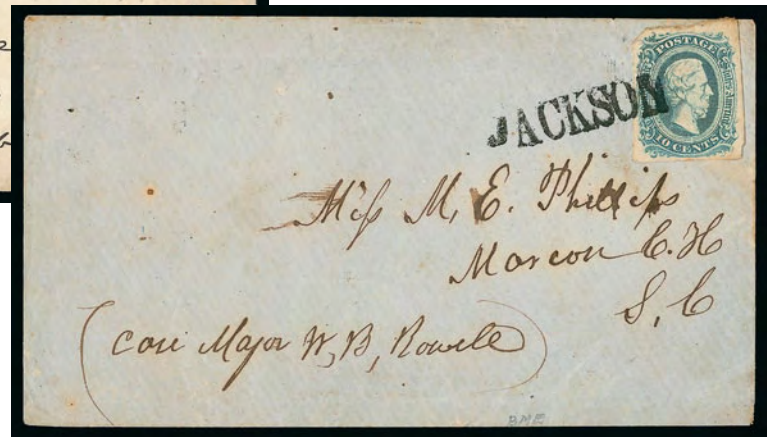 POSTAGE
10 CENTS
JACKSON
Miss M. E. Phillips
Marion C. H
S. C
(care Major W, B, Rowell)
BME